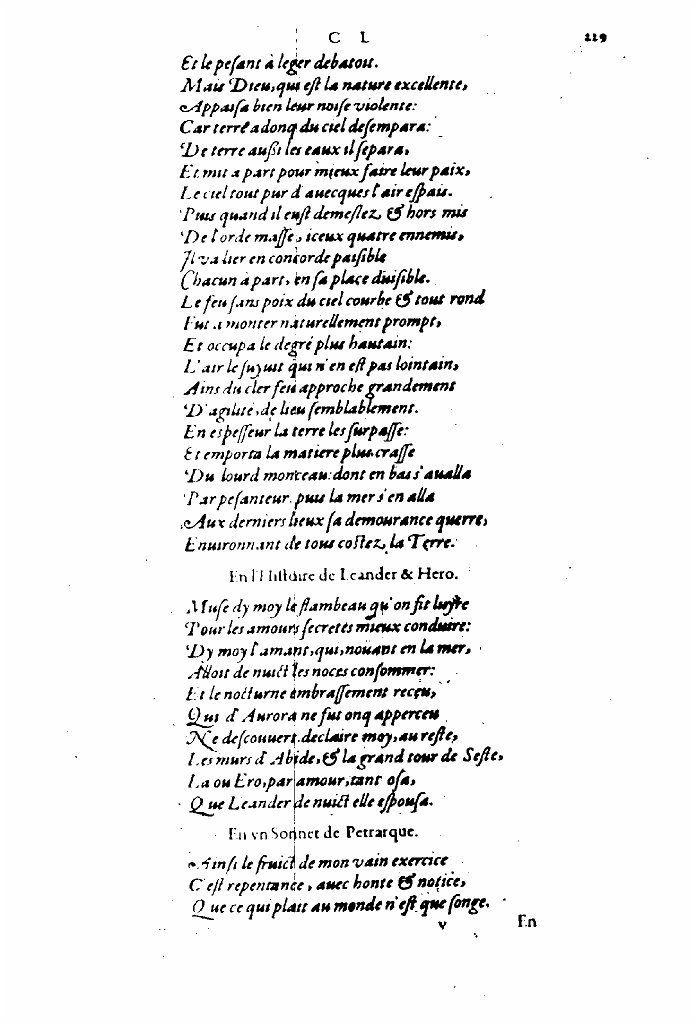 C L 229
Et le pesant à leger debatoit.
Mais Dieu, qui est la nature excellente,
Appaisa bien leur noise violente:
Car terre adonq du ciel desempara:
De terre aussi les eaux il separa,
Et mit a part pour mieux faire leur paix,
Le ciel tout pur d'auecques l'air espais.
Puis quand il eust demeslez, & hors mis
De l'orde masse, iceux quatre ennemis,
Il va lier en concorde paisible
Chacun à part, en sa place duisible.
Le feu sans poix du ciel courbe & tout rond
Fut a monter naturellement prompt,
Et occupa le degré plus hautain:
L'air le suyuit qui n'en est pas lointain,
Ains du cler feu approche grandement
D'agilité, de lieu semblablement.
En espesseur la terre les surpasse:
Et emporta la matiere plus crasse
Du lourd monceau: dont en bas s'aualla
Par pesanteur. puis la mer s'en alla
Aux derniers lieux sa demourance querre,
Enuironnant de tous costez, la Terre.
En l'Histoire de Leander & Hero.
Muse dy moy le flambeau qu'on fit luyre
Pour les amours secretes mieux conduire:
Dy moy l'amant, qui, nouant en la mer,
Alloit de nuict les noces consommer:
Et le nocturne embrassement receu,
Qui d'Aurora ne fut onq apperceu
Ne descouuert. declaire moy, au reste,
Les murs d'Abide, & la grand tour de Seste,
La ou Ero, par amour, tant osa,
Que Leander de nuict elle espousa.
En vn Sonnet de Petrarque.
Ainsi le fruict de mon vain exercice
C'est repentance, auec honte & notice,
Que ce qui plait au monde n'est que songe.
V En